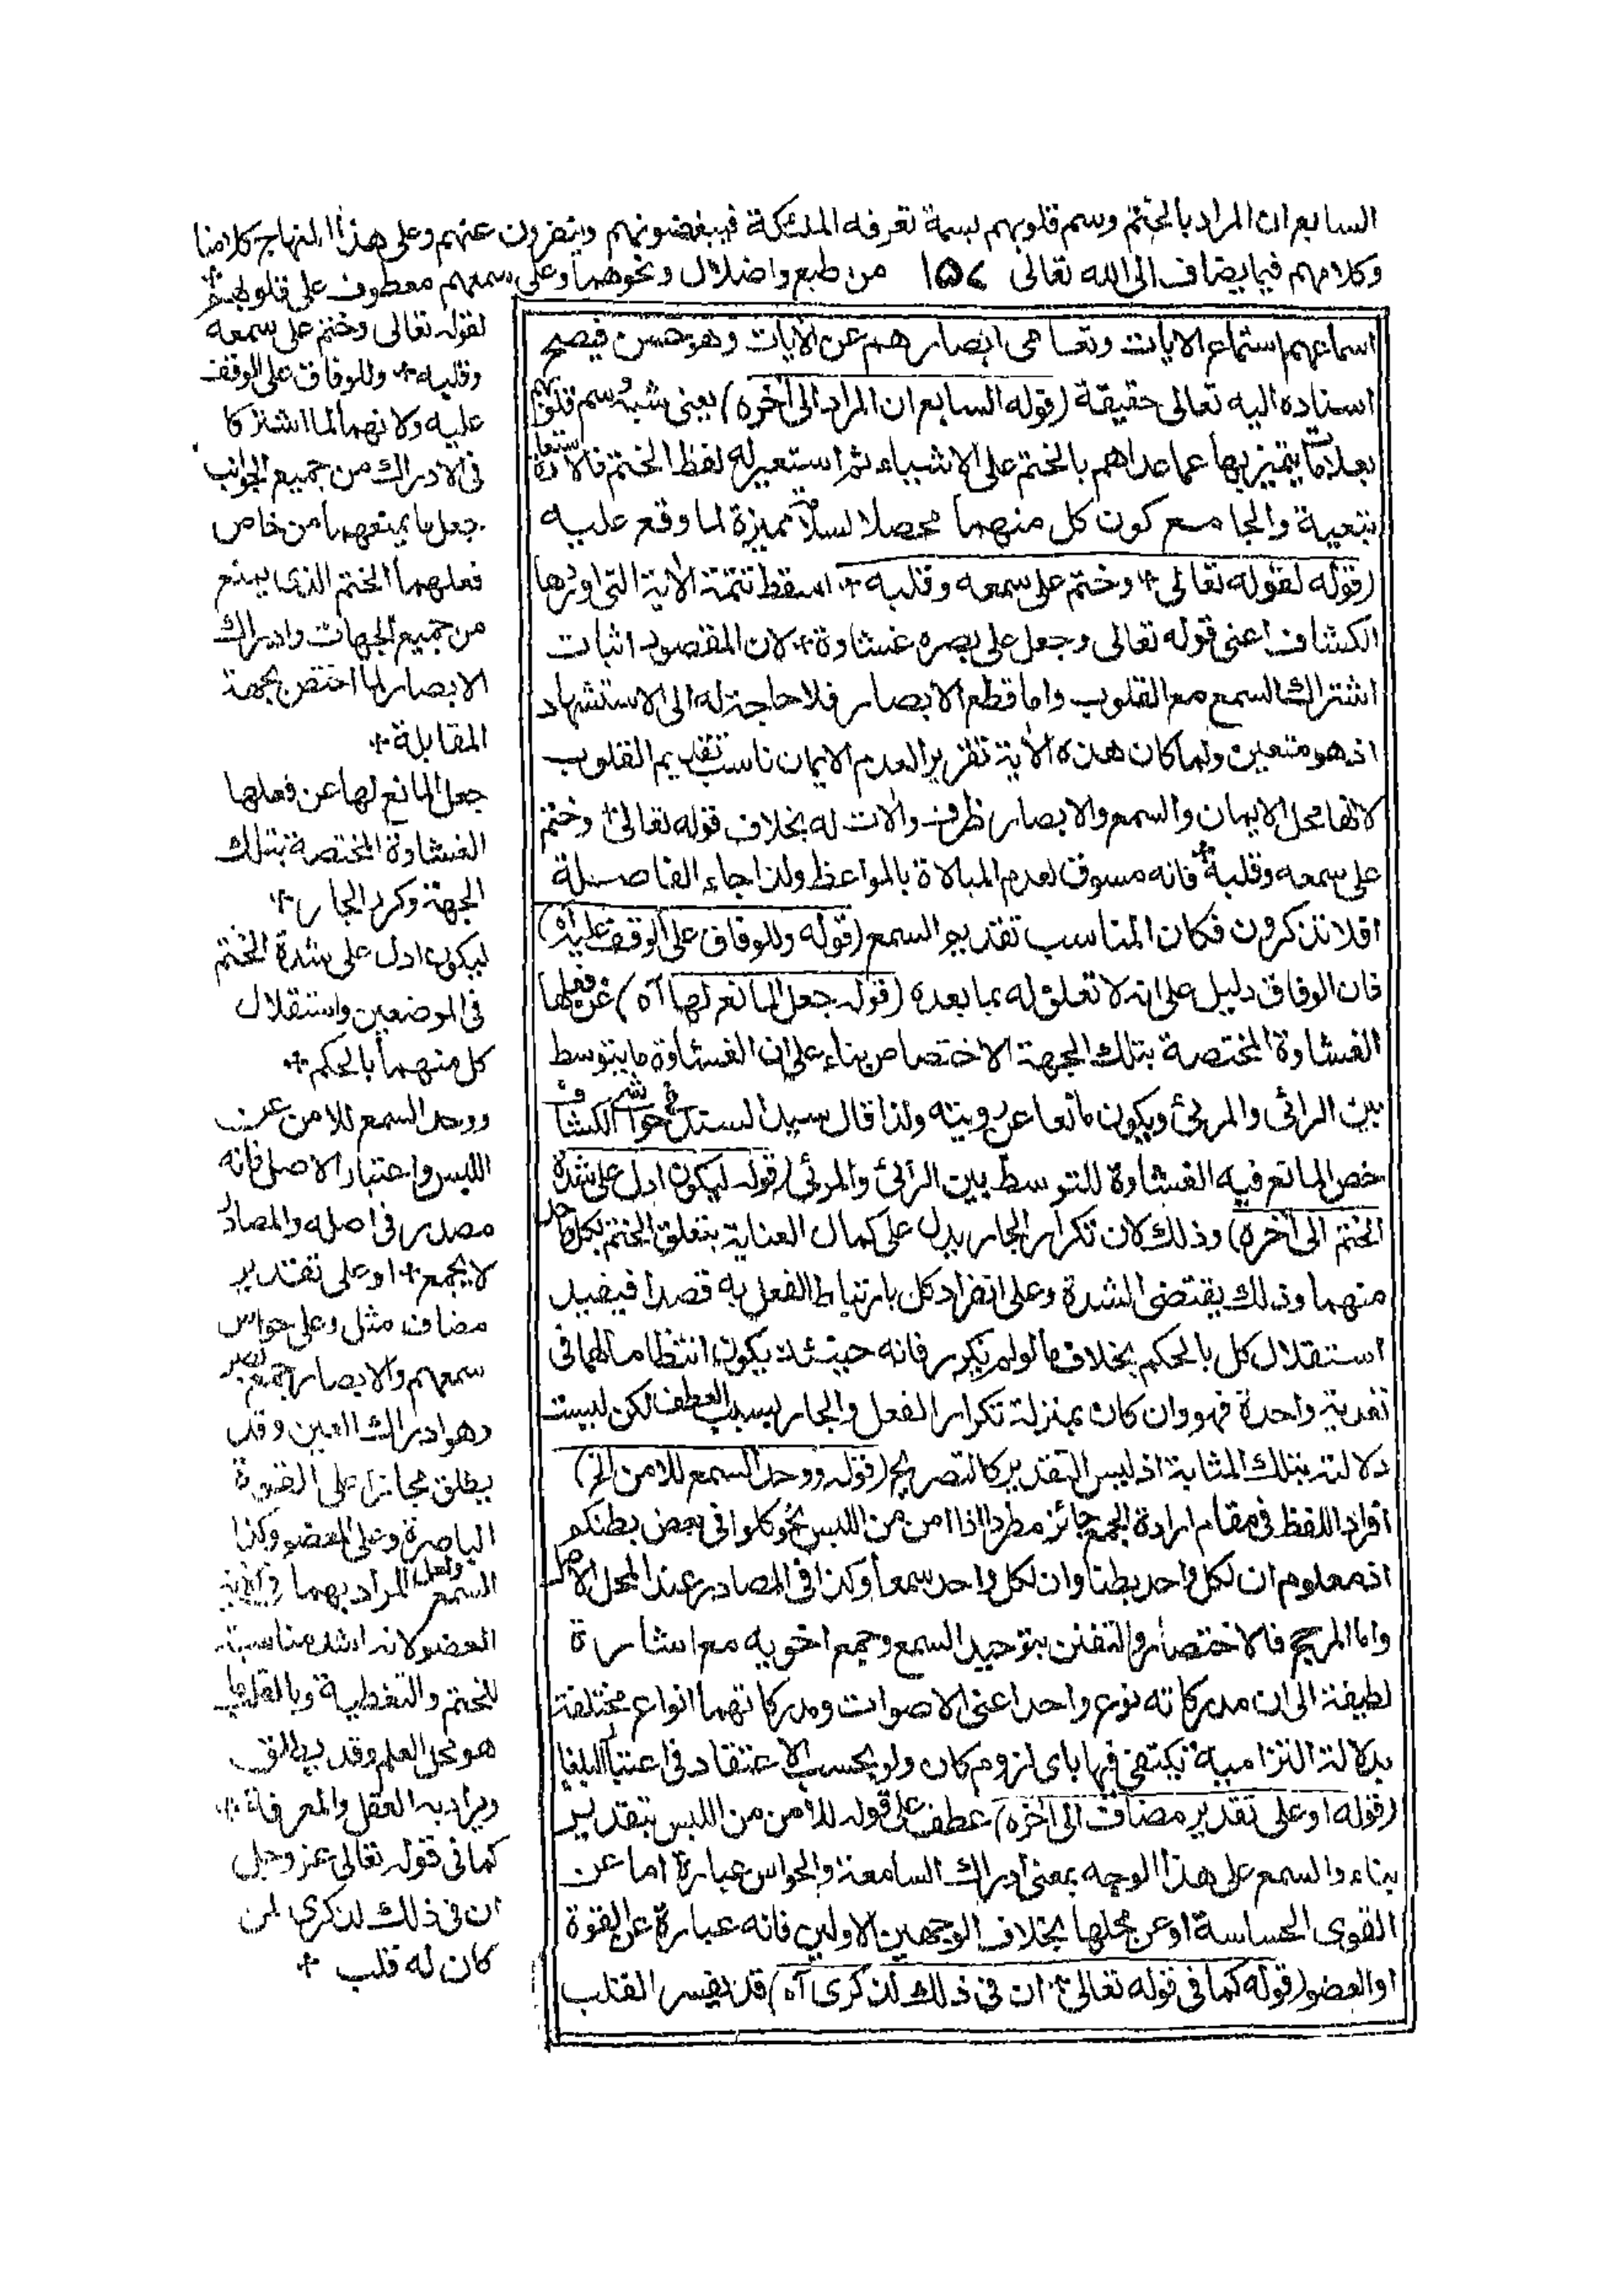 السابع ان المراد بالختم وسم قلوبهم بسمة تعرفه الملئكة فيبغضونهم وينفرون عنهم وعلى هذا المنهاج كلامنا
وكلامهم فيما يضاف الى الله تعالى ١٥٧ من طبع واضلال ونحوهما وعلى سمعهم معطوف على قلوبهم
لقوله تعالى وختم على سمعه
وقلبه + وللوفاق على الوقف
عليه ولانهما لما اشتركا
فى الادراك من جميع الجوانب
جعل ما يمنعهما من خاص
فعلهما الختم الذى يمنع
من جميع الجهات وادراك
الابصار لما اختص بجهة
المقابلة +
جعل المانع لها عن فعلها
الغشاوة المختصة بتلك
الجهة وكرر الجار +
ليكون ادل على شدة الختم
فى الموضعين واستقلال
كل منهما بالحكم +
ووحد السمع للامن عن
اللبس واعتبار الاصل فانه
مصدر فى اصله والمصادر
لا يجمع + او على تقدير
مضاف مثل وعلى حواس
سمعهم والابصار جمع بصر
وهو ادراك العين وقد
يطلق مجازا على القوة
الباصرة وعلى العضو وكذا
السمع ولعل المراد بهما فى الاية
العضو لانه اشد مناسبة
للختم والتغطية وبالقلب ما
هو محل العلم وقد يطلق
ويراد به العقل والمعرفة +
كما فى قوله تعالى عز وجل
ان فى ذلك لذكرى لمن
كان له قلب +
اسماعهم استماع الايات وتعامى ابصارهم عن الايات وهو حسن فيصح
اسناده اليه تعالى حقيقة (قوله السابع ان المراد الى آخره) يعنى شبه وسم قلوبهم
بعلامة يتميز بها عما عداهم بالختم على الاشياء ثم استعير له لفظ الختم فالاستعارة
تبعية والجامع كون كل منهما محصلا لسلامة مميزة لما وقع عليه
(قوله لقوله تعالى + وختم على سمعه وقلبه + اسقط تتمة الاية التى اوردها
الكشاف اعنى قوله تعالى وجعل على بصره غشاوة + لان المقصود اثبات
اشتراك السمع مع القلوب واما قطع الابصار فلا حاجة له الى الاستشهاد
اذ هو متعين ولما كان هذه الاية تقرير العدم الايمان ناسب تقديم القلوب
لانها محل الايمان والسمع والابصار ظرف والات له بخلاف قوله تعالى + وختم
على سمعه وقلبه + فانه مسوق لعدم المبالاة بالمواعظ ولذا جاء الفاصلة
افلا تذكرون فكان المناسب تقديم السمع (قوله وللوفاق على الوقف عليه آه)
فان الوفاق دليل على انه لا تعلق له بما بعده (قوله جعل المانع لها آه) عن فعلها
الغشاوة المختصة بتلك الجهة الاختصاص بناء على ان الغشاوة ما يتوسط
بين الرائى والمرئى ويكون مانعا عن رويته ولذا قال سيد السند فى حواشى الكشاف
خص المانع فيه الغشاوة للتوسط بين الرائى والمرئى (قوله ليكون ادل على شدة
الختم الى آخره) وذلك لان تكرار الجار يدل على كمال العناية بتعلق الختم بكل واحد
منهما وذلك يقتضى الشدة وعلى انفراد كل بارتباط الفعل به قصدا فيفيد
استقلال كل بالحكم بخلاف ما لو لم يكرر فانه حينئذ يكون انتظاما لهما فى
تعدية واحدة فهو وان كان بمنزلة تكرار الفعل والجار بسبب العطف لكن ليست
دلالته بتلك المثابة اذ ليس التقدير كالتصريح (قوله ووحد السمع للامن الخ)
افراد اللفظ فى مقام ارادة الجمع جائز مطردا اذا امن من اللبس نحو كلوا فى بعض بطنكم
اذ معلوم ان لكل واحد بطنا وان لكل واحد سمعا وكذا فى المصادر عند المحل الاصل
واما المرجح فالاختصار والتفنن بتوحيد السمع وجمع اخويه مع اشارة
لطيفة الى ان مدركاته نوع واحد اعنى الاصوات ومدركاتهما انواع مختلفة
بدلالة التزامية يكتفى فيها باى لزوم كان ولو بحسب الاعتقاد فى اعتبار البلغا
(قوله او على تقدير مضاف الى آخره) عطف على قوله للامن من اللبس بتقدير
بناء والسمع على هذا الوجه بمعنى ادراك السامعة والحواس عبارة اما عن
القوى الحساسة او عن محلها بخلاف الوجهين الاولين فانه عبارة عن القوة
او العضو (قوله كما فى قوله تعالى + ان فى ذلك لذكرى آه) قد يفسر القلب